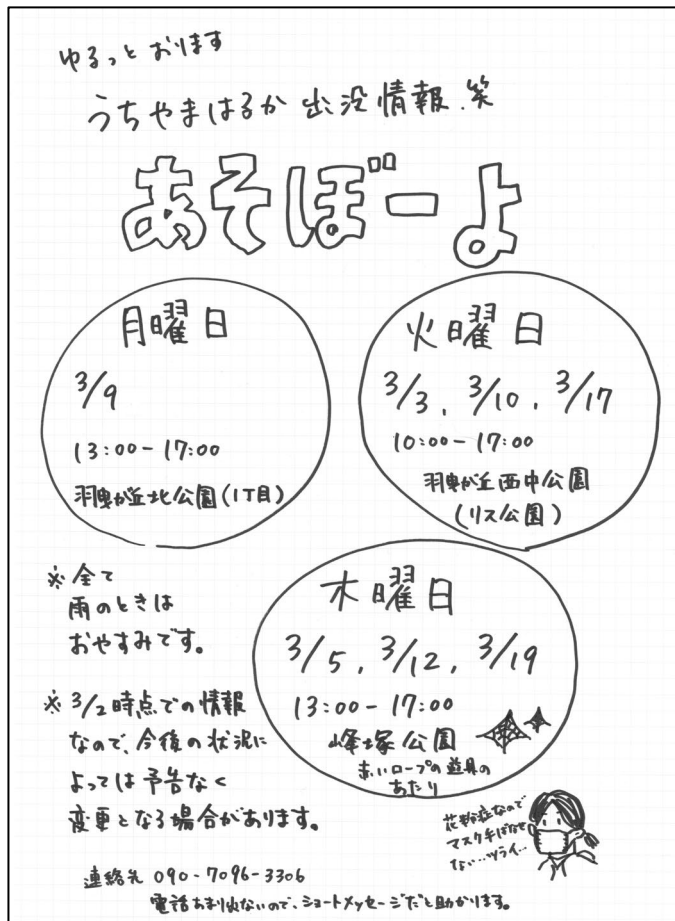 ゆるっと おります
うちやまはるか 出没情報.笑
あそぼーよ
月曜日
3/9
13:00-17:00
羽曳が丘北公園(1丁目)
火曜日
3/3, 3/10, 3/17
10:00-17:00
羽曳が丘西中公園
(リス公園)
木曜日
3/5, 3/12, 3/19
13:00-17:00
峰塚公園
赤いロープの遊具の
あたり
※全て
雨のときは
おやすみです。
※3/2時点での情報
なので、今後の状況に
よっては予告なく
変更となる場合があります。
花粉症なので
マスク手ばなせ
ない…ツライ…
連絡先 090-7096-3306
電話あまり出ないので、ショートメッセージだと助かります。